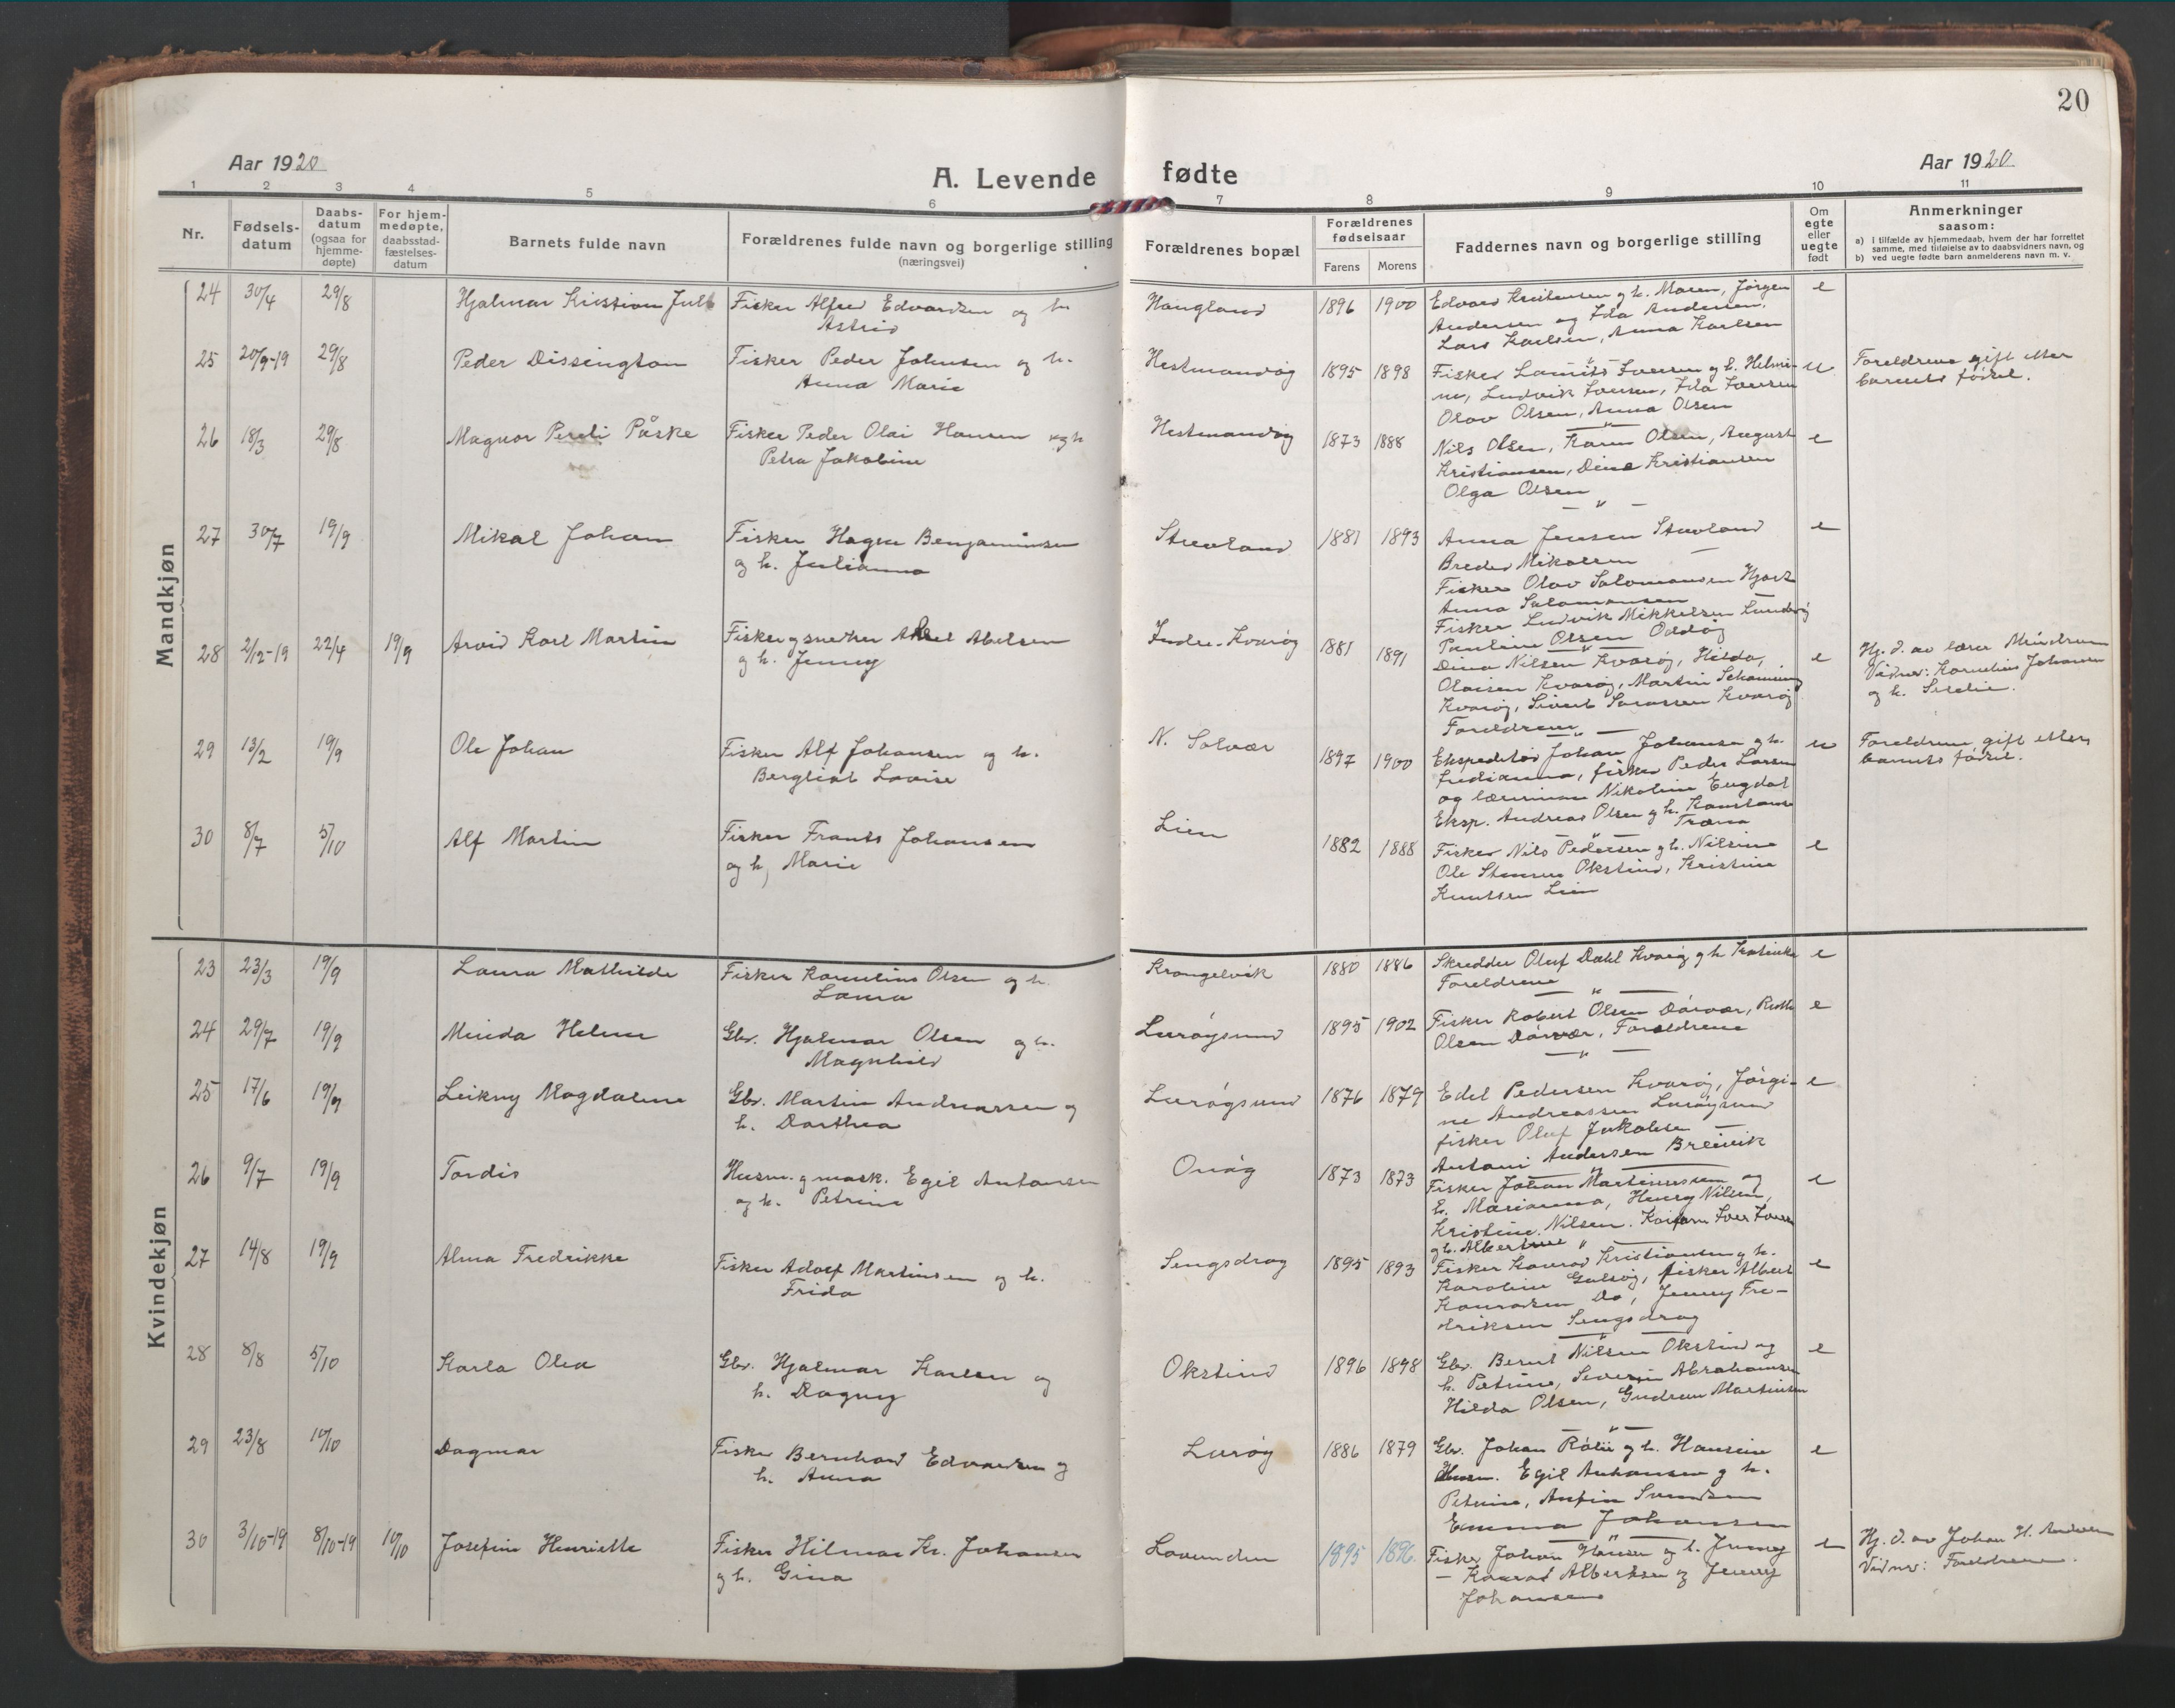 20
Aar 1920
A. Levende fødte
Aar 1920
1 2 3 4 5 6 7 8 9 10 11
Nr.
Fødsels-
datum
Daabs-
datum
(ogsaa for
hjemme-
døpte)
For hjem-
medøpte,
daabsstad-
fæstelses-
datum
Barnets fulde navn
Forældrenes fulde navn og borgerlige stilling
(næringsvei)
Forældrenes bopæl
Forældrenes
fødselsaar
Farens Morens
Faddernes navn og borgerlige stilling
Om
egte
eller
uegte
født
Anmerkninger
saasom:
a) i tilfælde av hjemmedaab, hvem der har forrettet
samme, med tilføielse av to daabsvidners navn, og
b) ved uegte fødte barn anmelderens navn m. v.
Mandkjøn
24 30/4 29/8 Hjalmar Kristian Fisker Alfred Edvardsen og h. Haugland 1896 1900 Edvard Kristensen og h. Maren, Jørgen e
Astrid
Andersen og Ida Andersen,
Lars Karlsen, Anna Karlsen
25 20/9-19 29/8 Peder Dissington Fisker Peder Johnsen og h. Hestmandøg 1895 1898 Fisker Iversen og h. Helmi- u Foreldrene gift etter
Anna Marie
ne, Ludvik Iversen, Ida Iversen
barnets fødsel.
Olav Olsen, Anna Olsen
26 18/3 29/8 Magnor Påske Fisker Peder Olai Hansen og h Hestmandøg 1873 1888 Nils Olsen, Karen Olsen, August e
Petra Jakobine
Kristiansen, Dina Kristiansen
Olga Olsen
27 30/7 19/9 Mikal Johan Fisker Hagen Benjaminsen Stuvland 1881 1893 Anna Jensen Stuvland e
og h. Julianna
Mikalsen
Fisker Olav Salomonsen Hjart
Anna Salomonsen
Fisker Ludvik Mikkelsen Sundøg
Pauline Olsen
28 2/12-19 22/4 19/9 Arvid Karl Martin Fisker og snekker Abelsen Indre-Kvarøg 1881 1891 Dina Nilsen Kvarøg, Hilda e Hj. d. av lærer
og h. Jenny
Olaisen Kvarøg, Martin
Vidner: Kornelius Johansen
Kvarøg, Sivert Kvarøg
og h.
Foreldrene
29 13/2 19/9 Ole Johan Fisker Alf Johansen og h. N. Solvær 1897 1900 Ekspeditør Johan Johansen og h. u Foreldrene gift etter
Bergliot Lovise
fisker Peder Larsen
barnets fødsel.
og lærerinne Nikoline Engdal
Eksp. Andreas Olsen og h. Konstanse
Træna
30 8/7 5/10 Alf Martin Fisker Frants Johansen Lien 1882 1888 Fisker Nils Pedersen og h. Nilsine e
og h, Marie
Ole Okstind, Kristine
Knutsen Lien
Kvindekjøn
23 23/3 19/9 Laura Mathilde Fisker Kornelius Olsen og h. Krangelvik 1880 1886 Skredder Oluf Dahl Kvarøg og h. e
Laura
Foreldrene
24 29/7 19/9 Minda Helene Gbr. Hjalmar Olsen og h. Lurøgsund 1895 1902 Fisker Robert Olsen Dørvær, e
Magnhild
Olsen Dørvær, Foreldrene
25 17/6 19/9 Leikny Magdalene Gbr. Martin Andreassen og Lurøgsund 1876 1879 Edel Pedersen Kvarøg, Jørgi- e
h. Dorthea
ne Andreassen Lurøgsund
fisker Oluf Jakobsen
Antoni Andersen Breivik
26 9/7 19/9 Tordis Husm. og mask. Egil Antonsen Onøg 1873 1873 Fisker Johan Martinussen og e
og h. Petrine
h. Marianna, Henry Nilsen,
Kristine Nilsen. Iver Iversen
og h. Albertine
27 14/8 19/9 Alma Fredrikke Fisker Adolf Martinsen og h. Sengsdrag 1895 1893 Fisker Konrad Kristiansen og h. e
Frida
Karoline fisker Albert
Konradsen Do, Jenny Fre-
driksen Sengsdrag
28 8/8 5/10 Karla Olea Gbr. Hjalmar Karlsen og Okstind 1896 1898 Gbr. Bernt Nilsen Okstind og e
h. Dagny
h. Petrine, Severin Abrahamsen
Hilda Olsen, Gudrun Martinsen
29 23/8 10/10 Dagmar Fisker Bernhard Edvardsen og Lurøg 1886 1879 Gbr. Johan og h. Hansine e
h. Anna
Husm. Egil Antonsen og h.
Petrine,
Emma Johansen
30 3/10-19 8/10-19 10/10 Josefine Henriette Fisker Hilmar Kr. Johansen Lovunden 1895 1896 Fisker Johan Hansen og h. Jenny e Hj. d. av Johan H.
og h. Gina
Konrad Albertsen og Jenny
Vidner: Foreldrene.
Johansen